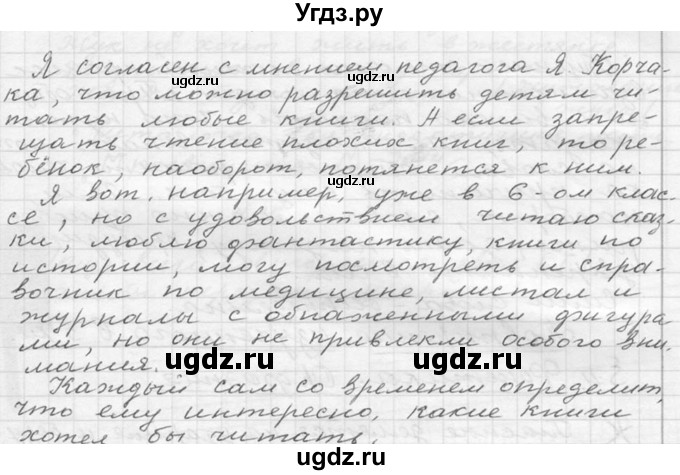 Угдз.ру
Я согласен с мнением педагога Я. Корча-
ка, что можно разрешить детям чи-
тать любые книги. А если запре-
щать чтение плохих книг, то ре-
бёнок, наоборот, потянется к ним.
Я вот, например, уже в 6-ом клас-
се, но с удовольствием читаю сказ-
ки, люблю фантастику, книги по
истории, могу посмотреть и спра-
вочник по медицине, листал и
журналы с обнаженными фигура
ми, но они не привлекли особого вни-
мания.
Каждый сам со временем определит,
что ему интересно, какие книги
хотел бы читать.
ugdz.ru
ugdz.ru
ugdz.ru
ugdz.ru
ugdz.ru
ugdz.ru
ugdz.ru
ugdz.ru
ugdz.ru